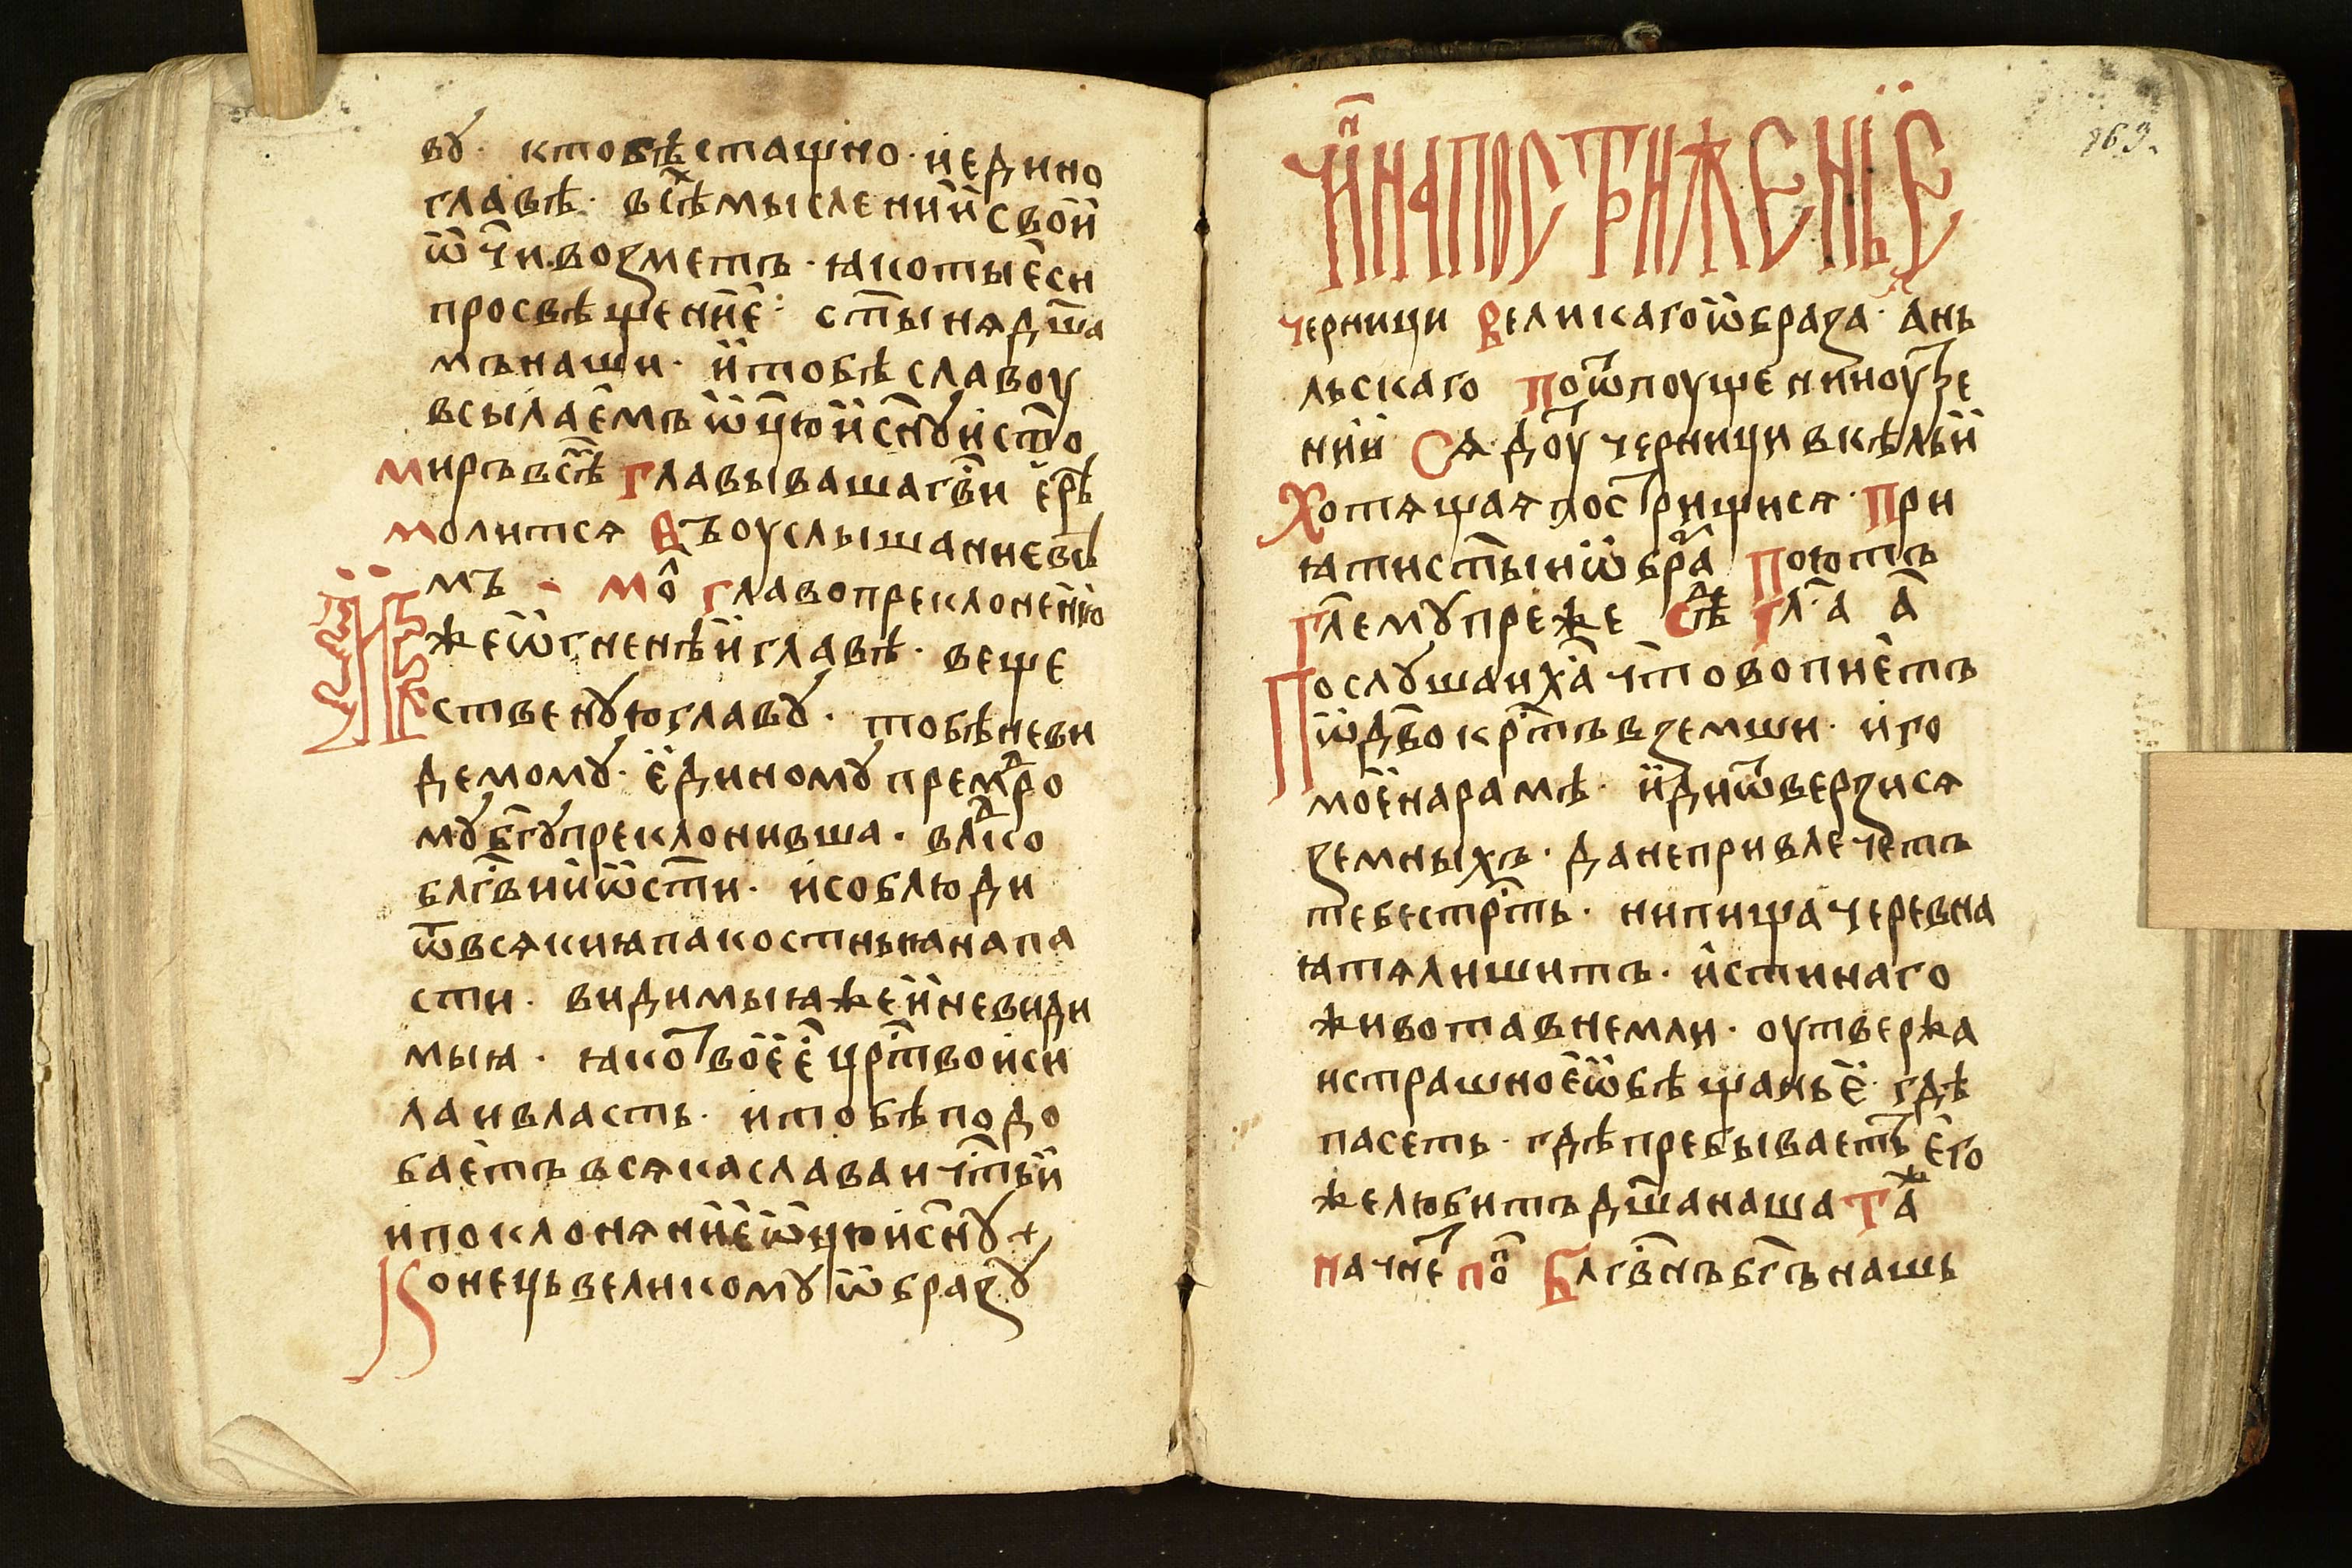 вꙋ · ктобѣсташно · и҆едино
главѣ · всѣⷯмыслении҆свои҆
ѿ чи҃.воꙁметъ · ꙗкотыє҆си
просвѣщенїе҆ · ст҃ынѧдш҃а
мънаши · и҆тобѣ славоу
всылає҆мъ ѡ҆ц҃юи҆сн҃ꙋистм҃о
миръвсѣⷨ главывашагвⷭ҇и і҆ерⷺ
молитсѧ въоуслышаниевсѣ
мъ – моⷧ҇ главопреклонеⷩ҇ню
И҆жеѡ҆гненѣи҆главѣ · веще
ственꙋюглавꙋ · тобѣневи
демомꙋ · є҆диномꙋпремⷣро
мꙋбг҃ꙋпреклонивша · влⷣко
блгⷭ҇вии҆ѡ҆ст҃и · и҆соблюди
ѿвсѧкиꙗпакостныꙗнапа
сти · видимыꙗжеи҆невиди
мыꙗ · ꙗкоⷮвое҆є҆ црⷭ҇твои҆си
лаивласть · и҆тобѣподо
бае҆тъвсѧкаславаичⷭ҇тьи҆
и҆поклонѧнїе҆ѡ҆ц҃юи҆сн҃ꙋ +
Конецьвеликомꙋѡ҆браꙁꙋ
Чиⷩ҇напострижение
163.
черници великагоѡ҆браꙁа · а҆нь
льскаго поѿпоущениноуⷮре
нии҆ Сѧдоуⷮ черницивкѣльи҆
Хотѧщаѧпострищисѧ · При
ꙗтист҃ыиѡ҆браⷥ҇ Поютъ
гл҃емꙋпреже сѣⷣ гл҃ · а а҃
Послꙋшаих҃а чт҃овопиє҆тъ
ѡ҆дв҃окрⷭ҇тъвꙁемши · и҆го
мое҆нарамѣ · и҆диѿверꙁисѧ
ꙁемныхъ · данепривлечетъ
тебестрⷭ҇ть · нипищачеревна
ꙗтѧлишитъ · и҆стинаго
животавнемли · оутвержа
истрашное҆ѡ҆бѣщаньє҆ · гдѣ
пасеть · гдѣпребываетⷮъ є҆го
желюбитъдш҃анаша Таⷤ
начнеⷮ поⷫ҇ Блгⷭ҇внъбг҃ънашь